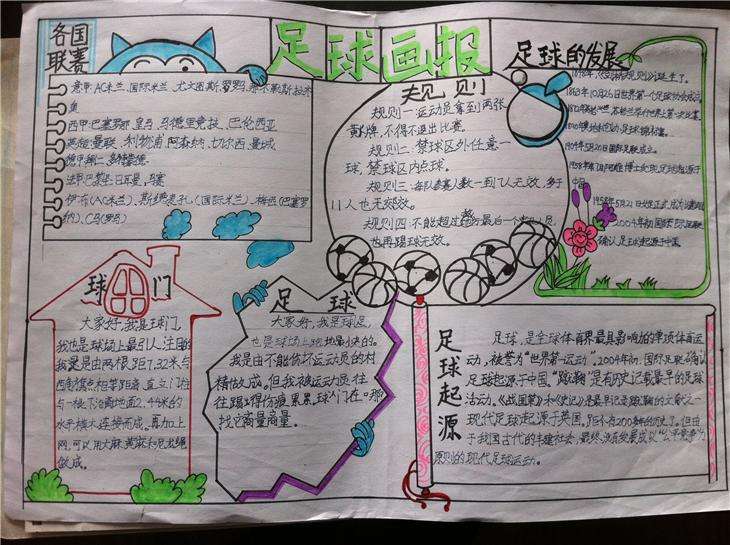 足球画报
各国
联赛
意甲:AC米兰、国际米兰、尤文图斯、罗马、那不勒斯、拉齐
奥
西甲:巴塞罗那、皇马、马德里竞技、巴伦西亚
英超:曼联、利物浦、阿森纳、切尔西、曼城
德甲
法甲:巴黎圣日耳曼、马赛
伊布(AC米兰)、斯内德(国际米兰)、梅西(巴塞罗
纳)、C马(罗马)
规则
规则一:运动员拿到两张
黄牌,不得不退出比赛。
规则二:禁球区外任意一
球,禁球区内点球。
规则三:每队参赛人数一到7人无效,多于
11人也无效。
规则四:不能超过
也再踢球无效。
足球的发展
1863年10月26日世界第一个足球协会成立
1904年5月20日国际足联成立。
中国
2004年初国际足联
确认足球起源于中国
球门
大家好,我是球门,
我也是球场上最引人注目的
我是是由两根距7.32米与
西侧旗点相等距离、直立门柱
与一根下沿离地面2.44米的
水平横木连接而成。再加上
网,可以用大麻、黄麻和尼龙绳
做成。
足球
大家好,我是球足,
也是球场上跑地最快的。
我是由不能伤坏运动员的材
精做成,但我被运动员往
往踢得伤痕累累,球门在一那
找它商量商量。
足球起源
足球,是全球体育界最具影响力的单项体育运
动,被誉为“世界第一运动”。2004年初,国际足联确认
足球起源于中国,“蹴鞠”是有历史记载最早的足球
活动。《战国策》和《史记》是最早记录蹴鞠的文献之一
现代足球起源于英国。距今有200多年的历史了。但由
于我国古代的封建社会,最终没有发展成以“公平竞争”为
原则的现代足球运动。